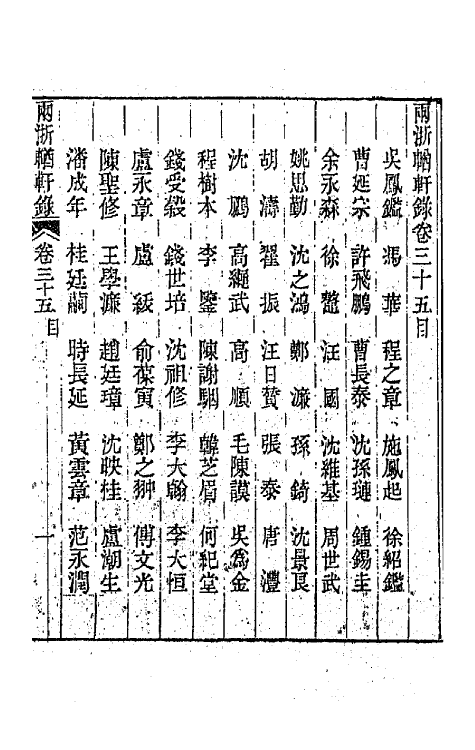 兩浙輶軒錄卷三十五目
吳鳳鑑 馮華 程之章 施鳳起 徐紹鑑
曹延宗 許飛鵬 曹長泰 沈孫璉 鍾錫圭
余永森 徐鼇 汪國 沈維基 周世武
姚思勤 沈之鴻 鄭濂 孫錡 沈景良
胡濤 翟振 汪日贊 張泰 唐灃
沈鵬 高繩武 高順 毛陳謨 吳為金
程樹本 李鑒 陳謝駰 韓芝眉 何紀堂
錢受榖 錢世培 沈祖修 李大翰 李大恒
盧永章 盧緩 俞葆寅 鄭之翀 傅文光
陳聖修 王學濂 趙廷璋 沈映桂 盧潮生
潘成年 桂廷嗣 時長延 黃雲章 范永潤
兩浙輶軒錄 卷三十五目 一